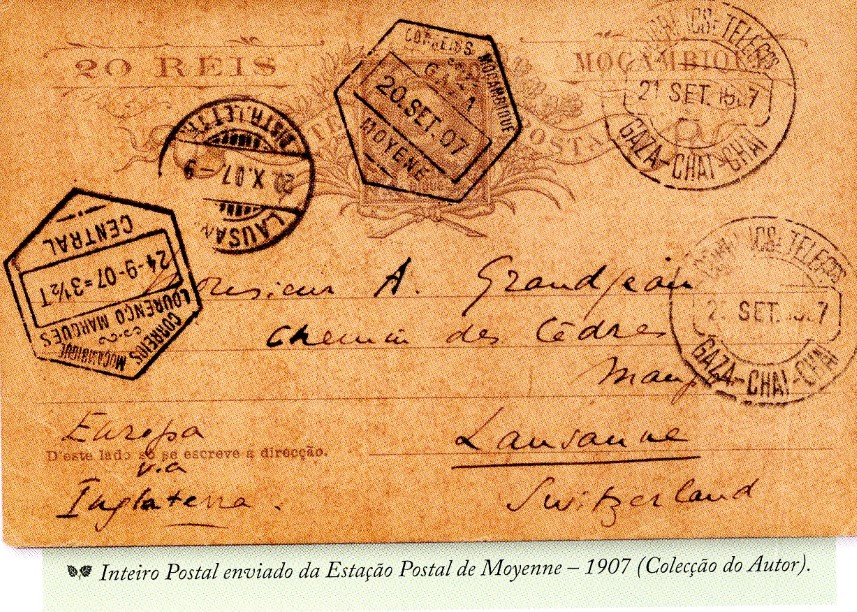 20 REIS
MOÇAMBIQUE
CORREIOS MOÇAMBIQUE
GAZA
20.SET.07
MOYENE
CORREIOS E TELEGOS
21 SET. 1907
GAZA-CHAI-CHAI
DIST.LETTR.
20.X.07-9
LAUSANNE
CENTRAL
24-9-07=3½T
LOURENÇO MARQUES
CORREIOS
MOÇAMBIQUE
CORREIOS E TELEGOS
SET. 1907
GAZA-CHAI-CHAI
POSTAL
Monsieur A. Grandjean
Chemin des Cèdres
Lausanne
Switzerland
Europa
via
Inglaterra.
D'este lado só se escreve a direcção.
Inteiro Postal enviado da Estação Postal de Moyenne – 1907 (Colecção do Autor).